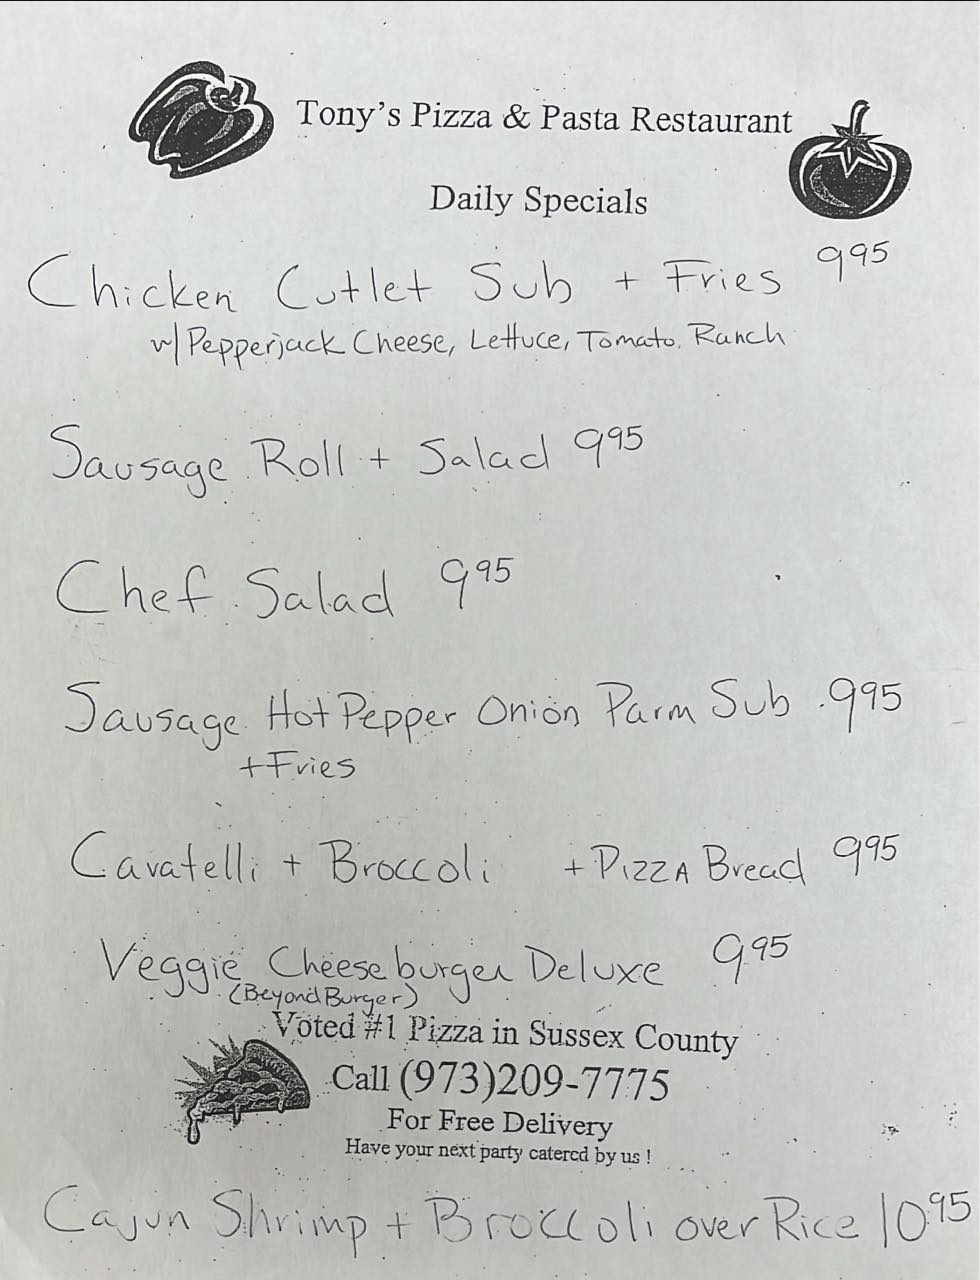 Tony's Pizza & Pasta Restaurant
Daily Specials
Chicken Cutlet Sub + Fries 9 95
w/ Pepperjack Cheese, Lettuce, Tomato, Ranch
Sausage Roll + Salad 9 95
Chef Salad 9 95
Sausage Hot Pepper Onion Parm Sub 9 95
+ Fries
Cavatelli + Broccoli + Pizza Bread 9 95
Veggie Cheeseburger Deluxe 9 95
(Beyond Burger)
Voted #1 Pizza in Sussex County
Call (973)209-7775
For Free Delivery
Have your next party catered by us !
Cajun Shrimp + Broccoli over Rice 10 95